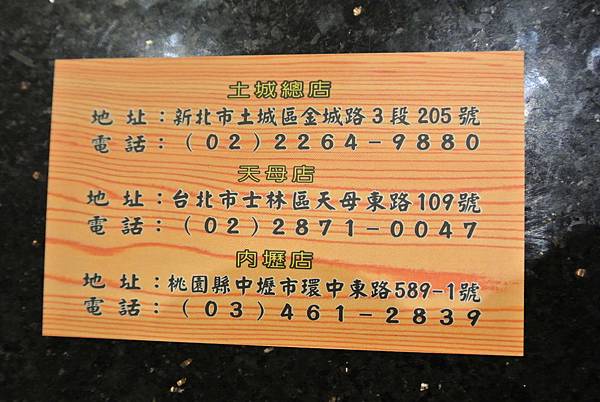 土城總店
地 址：新北市土城區金城路3段205號
電 話：（02）2264－9880
天母店
地 址：台北市士林區天母東路109號
電 話：（02）2871－0047
內壢店
地 址：桃園縣中壢市環中東路589-1號
電 話：（03）461－2839